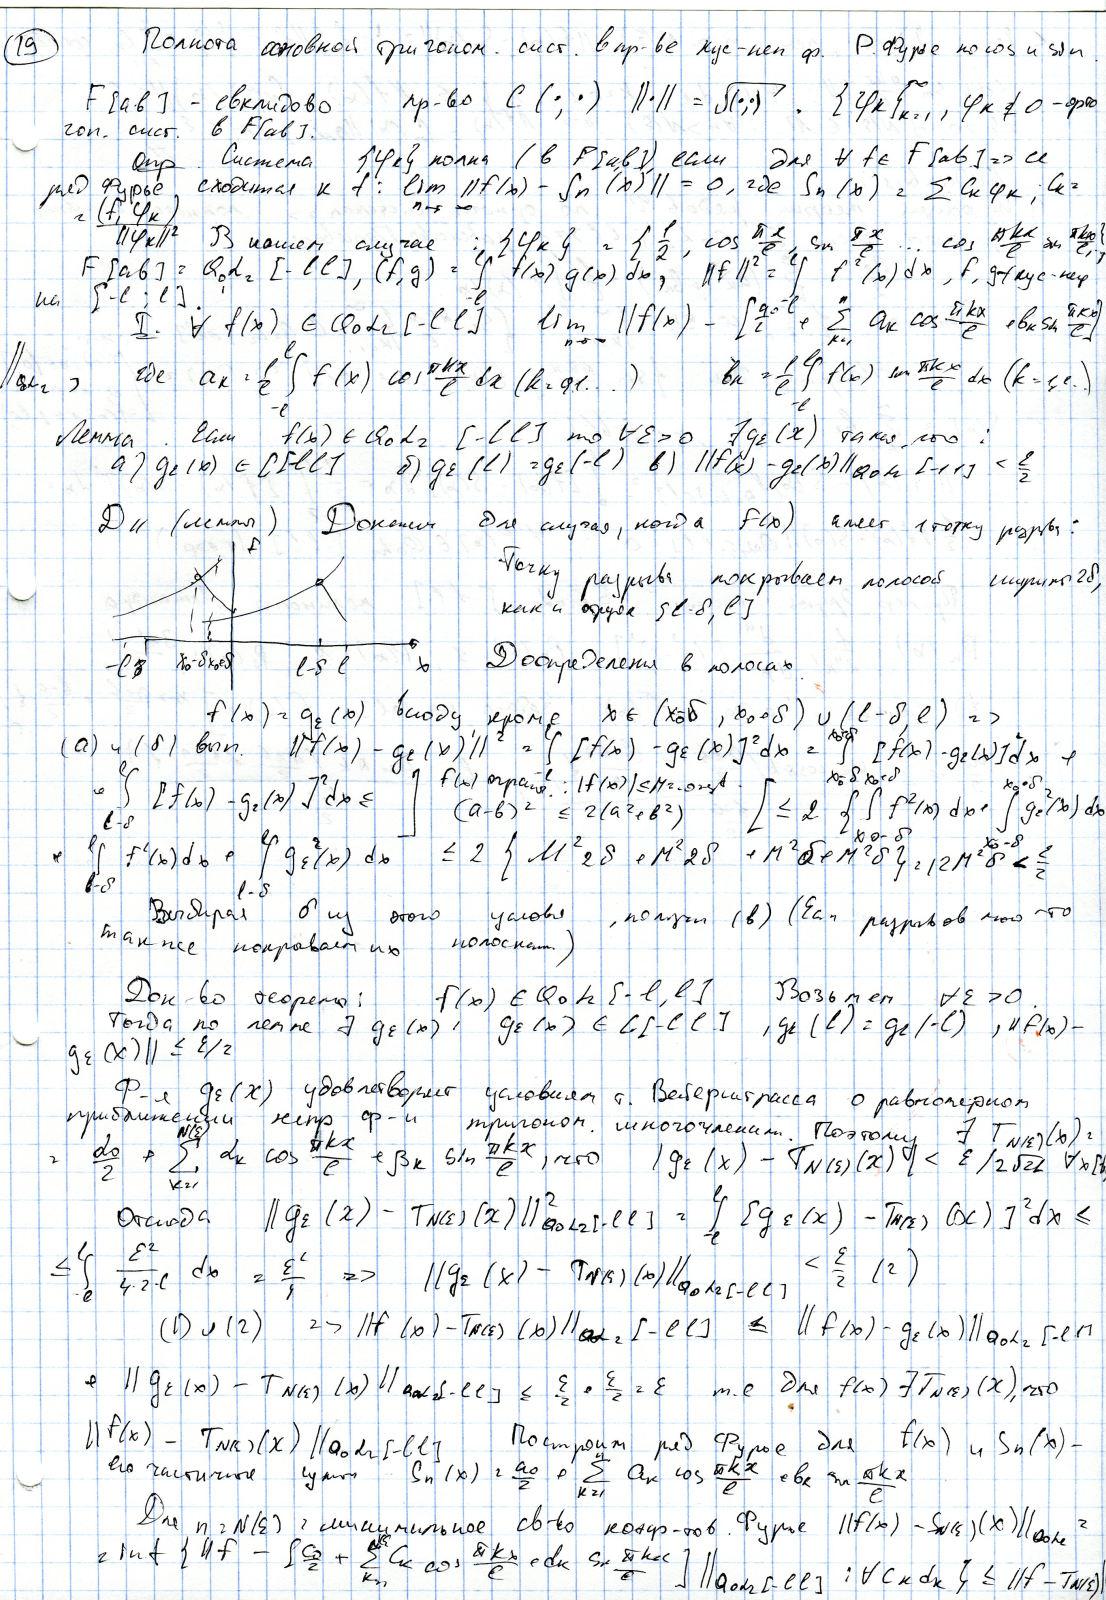 19 Полнота основной тригоном. сист. в пр-ве кус-неп ф. Р. Фурье по cos и sin.
F[ab] - евклидово пр-во с (·,·) ||·|| = √(·,·) . {φк}∞к=1, φк ≠ 0 - орто
гон. сист. в F[ab].
Опр. Система {φк} полна (в F[ab]) если для ∀ f ∈ F[ab] => ее
ряд Фурье сходится к f: lim n→∞ ||f(x) - Sn(x)|| = 0, где Sn(x) = Σ Cкφк, Cк=
= (f, φк)/||φк||² В нашем случае : {φк} = {1/2, cos πx/l, sin πx/l ... cos πkx/l sin πkx/l}
F[ab] = Q0L2 [-l l], (f,g) = ∫ f(x) g(x) dx, ||f||² = ∫ f²(x) dx, f, g - кус-неп
на [-l ; l].
I. ∀ f(x) ∈ Q0L2 [-l l] lim n→∞ ||f(x) - [a0/2 + Σ k=1 n aк cos πkx/l + bк sin πkx/l]
||Q0L2 , где aк = 1/l ∫ -l l f(x) cos πkx/l dx (k=0,1...) bк = 1/l ∫ -l l f(x) sin πkx/l dx (k=1,2..)
Лемма. Если f(x) ∈ Q0L2 [-l l] то ∀ε>0 ∃gε(x) такая, что :
а) gε(x) ∈ C[-l l] б) gε(l) = gε(-l) в) ||f(x) - gε(x)||Q0L2 [-l l] < ε/2
Д-во (леммы) Докажем для случая, когда f(x) имеет 1 точку разрыва:
f
Точку разрыва покрываем полосой ширины 2δ,
как и отрезок [l-δ, l]
-l x0-δ x0+δ l-δ l x
Доопределения в полосах
f(x) = gε(x) всюду, кроме x ∈ (x0-δ, x0+δ) ∪ (l-δ, l) =>
(а) и (б) вып. ||f(x) - gε(x)||² = ∫ [f(x) - gε(x)]² dx = ∫ [f(x) - gε(x)]² dx +
+ ∫ l-δ l [f(x) - gε(x)]² dx ≤ ] f(x) огранич.: |f(x)| ≤ M = const (a-b)² ≤ 2(a²+b²) [ ≤ 2 {∫ x0-δ x0+δ f²(x) dx + ∫ x0-δ x0+δ gε²(x) dx
+ ∫ l-δ l f²(x) dx + ∫ l-δ l gε²(x) dx ≤ 2 { M² 2δ + M² 2δ + M² δ + M² δ } = 12M² δ < ε/2
Выбирая δ из этого условия, получим (в) (Если разрывов много то
также покрываем их полосками)
Док-во теоремы: f(x) ∈ Q0L2 [-l, l] Возьмем ∀ε > 0.
Тогда по лемме ∃ gε(x): gε(x) ∈ C[-l l], gε(l) = gε(-l), ||f(x) -
gε(x)|| ≤ ε/2
Ф-я gε(x) удовлетворяет условиям т. Вейерштрасса о равномерном
приближении непр ф-и тригоном. многочленом. Поэтому ∃ TN(ε)(x) =
= α0/2 + Σ k=1 N(ε) αк cos πkx/l + βк sin πkx/l, что |gε(x) - TN(ε)(x)| < ε/2√2l ∀x
Отсюда ||gε(x) - TN(ε)(x)||² Q0L2[-l l] = ∫ -l l [gε(x) - TN(ε)(x)]² dx ≤
≤ ∫ -l l ε²/4·2·l dx = ε²/4 => ||gε(x) - TN(ε)(x)||Q0L2[-l l] < ε/2 (2)
(1) и (2) => ||f(x) - TN(ε)(x)||Q0L2 [-l l] ≤ ||f(x) - gε(x)||Q0L2 [-l l]
+ ||gε(x) - TN(ε)(x)||Q0L2[-l l] ≤ ε/2 + ε/2 = ε т.е для f(x) ∃TN(ε)(x), что
||f(x) - TN(ε)(x)||Q0L2[-l l] Построим ряд Фурье для f(x) и Sn(x) -
его частичные суммы Sn(x) = a0/2 + Σ k=1 n aк cos πkx/l + bк sin πkx/l
Для n = N(ε) = минимальное св-во коэфф-тов Фурье ||f(x) - SN(ε)(x)||Q0L2 =
= inf {||f - [c0/2 + Σ k=1 N(ε) Cк cos πkx/l + dк sin πkx/l]||Q0L2[-l l] : ∀ cк dк} ≤ ||f - TN(ε)||